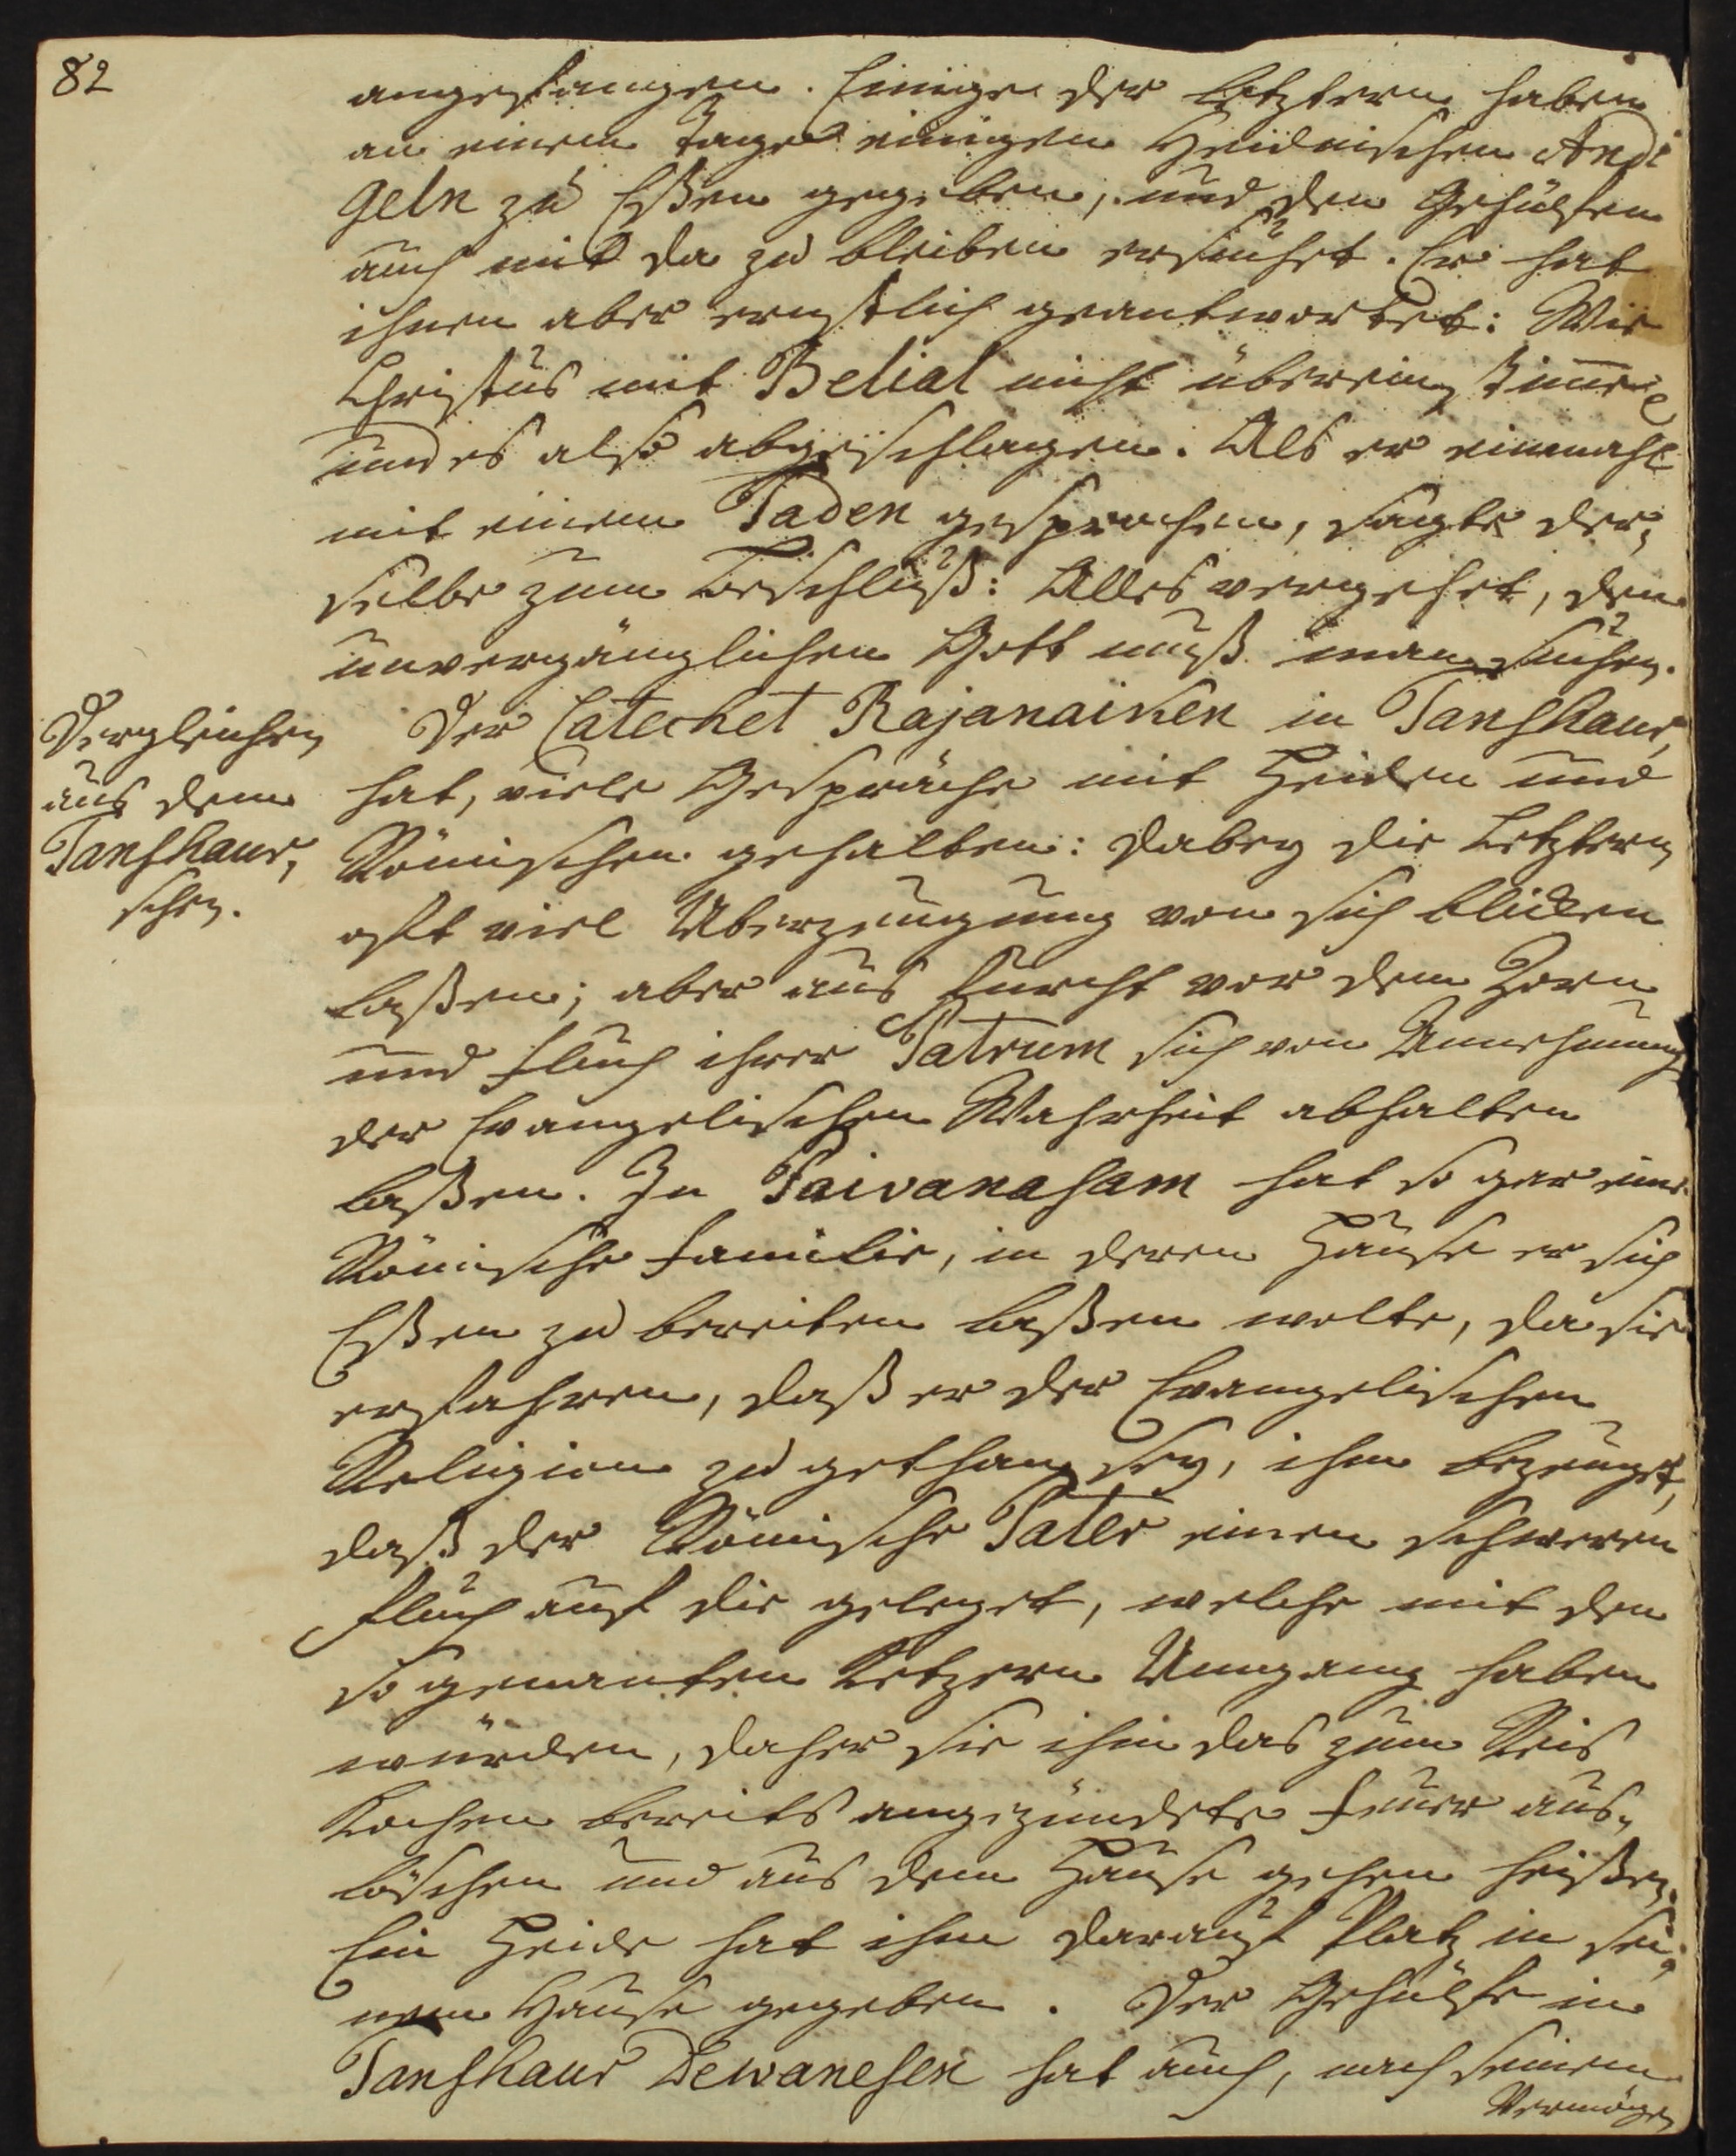 82
angefangen. Einige der letztern haben
an einem Tage einigen Heidnischen Andi
geln zu Eßen gegeben, und den Gehülfen
auch mit da zu bleiben ersuchet. Er hat
ihnen aber ernstlich geantwortet: Wie
Christus mit Belial nicht übereinstimme
und es also abgeschlagen. Als er einmahl
mit einem Taden gesprochen, sagte der,
selbe zum Beschluß: Alles vergehet, den
unvergänglichen Gott muß man suchen.
Dergleichen
aus dem
Tanshaur,
schen.
Der Catechet Rajanaiken in Tanshaur,
hat, viele Gespräche mit Heiden und
Römischen gehalten: dabey die Letztern
oft viel Uberzeugung von sich blicken
laßen; aber aus Furcht vor dem Zorn
und Fluch ihrer Patrum sich von Annehmung
der Evangelischen Wahrheit abhalten
laßen. In Paivanasam hat so gar eine
Römische Familie, in deren Hause er sich
Eßen zu bereiten laßen wolte, da sie
erfahren, daß er der Evangelischen
Religion zu gethan sey, ihm bezeuget,
daß der Römische Pater einen schweren
Fluch auf die geleget, welche mit den
so genanten Ketzern Umgang haben
würden, daher sie ihm das zum Reis
Kochen bereits angezündete Feuer aus,
löschen und aus dem Hause gehen heißen.
Ein Heide hat ihm darauf Platz in sei,
nem Hause gegeben. Der Gehülfe in
Tanshaur Dewanesen hat auch, nach seinem
Vermögen